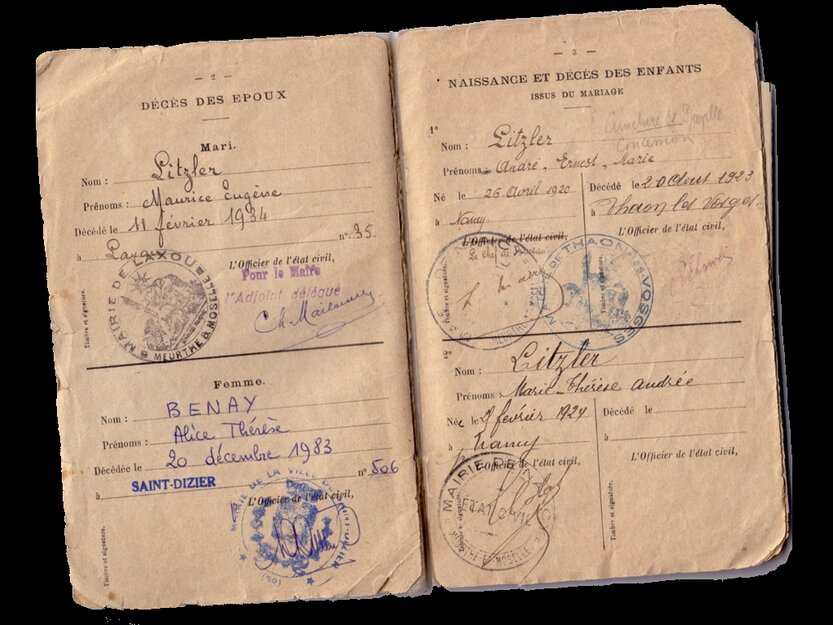 — 2 —
DÉCÈS DES EPOUX
Mari.
Nom : Litzler
Prénoms : Maurice Eugène
Décédé le 11 février 1934
à Laxou nº 35
L'Officier de l'état civil,
Pour le Maire
l'Adjoint délégué
MAIRIE DE LAXOU
MEURTHE & MOSELLE
Timbre et signature.
Femme.
Nom : BENAY
Prénoms : Alice Thérèse
Décédée le 20 décembre 1983
à SAINT-DIZIER nº 506
L'Officier de l'état civil,
Timbre et signature.
— 3 —
NAISSANCE ET DÉCÈS DES ENFANTS
ISSUS DU MARIAGE
1º
Concession
Nom : Litzler
Prénoms : André, Ernest, Marie
Né le 26 Avril 1920
à Nancy
L'Officier de l'état civil,
Timbre et signature.
Décédé le 20 Août 1923
à Thaon les Vosges
L'Officier de l'état civil,
MAIRIE DE THAON-LES-VOSGES
Timbre et signature.
2º
Nom : Litzler
Prénoms : Marie-Thérèse Andrée
Née le 9 février 1924
à Nancy
L'Officier de l'état civil,
MAIRIE DE
ETAT CIVIL
Timbre et signature.
Décédé le
à
L'Officier de l'état civil,
Timbre et signature.